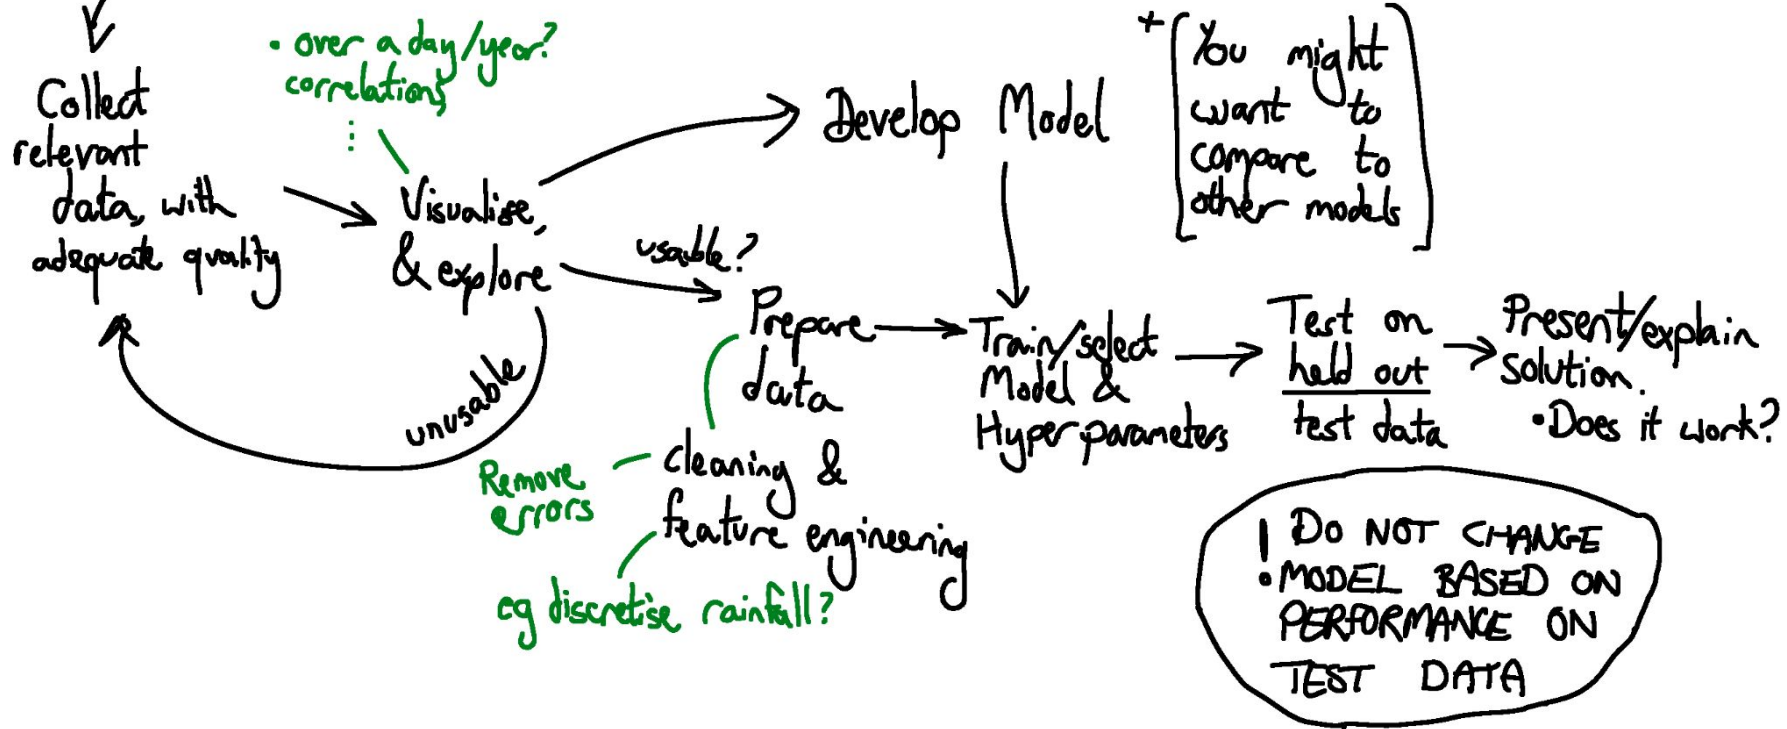 Collect
relevant
data, with
adequate quality
• over a day/year?
correlations
Visualise,
& explore
unusable
usable?
Develop Model
+ [You might
want to
compare to
other models]
Prepare
data
cleaning &
feature engineering
Remove
errors
eg discretise rainfall?
Train/select
Model &
Hyperparameters
Test on
held out
test data
Present/explain
solution.
• Does it work?
! DO NOT CHANGE
MODEL BASED ON
PERFORMANCE ON
TEST DATA